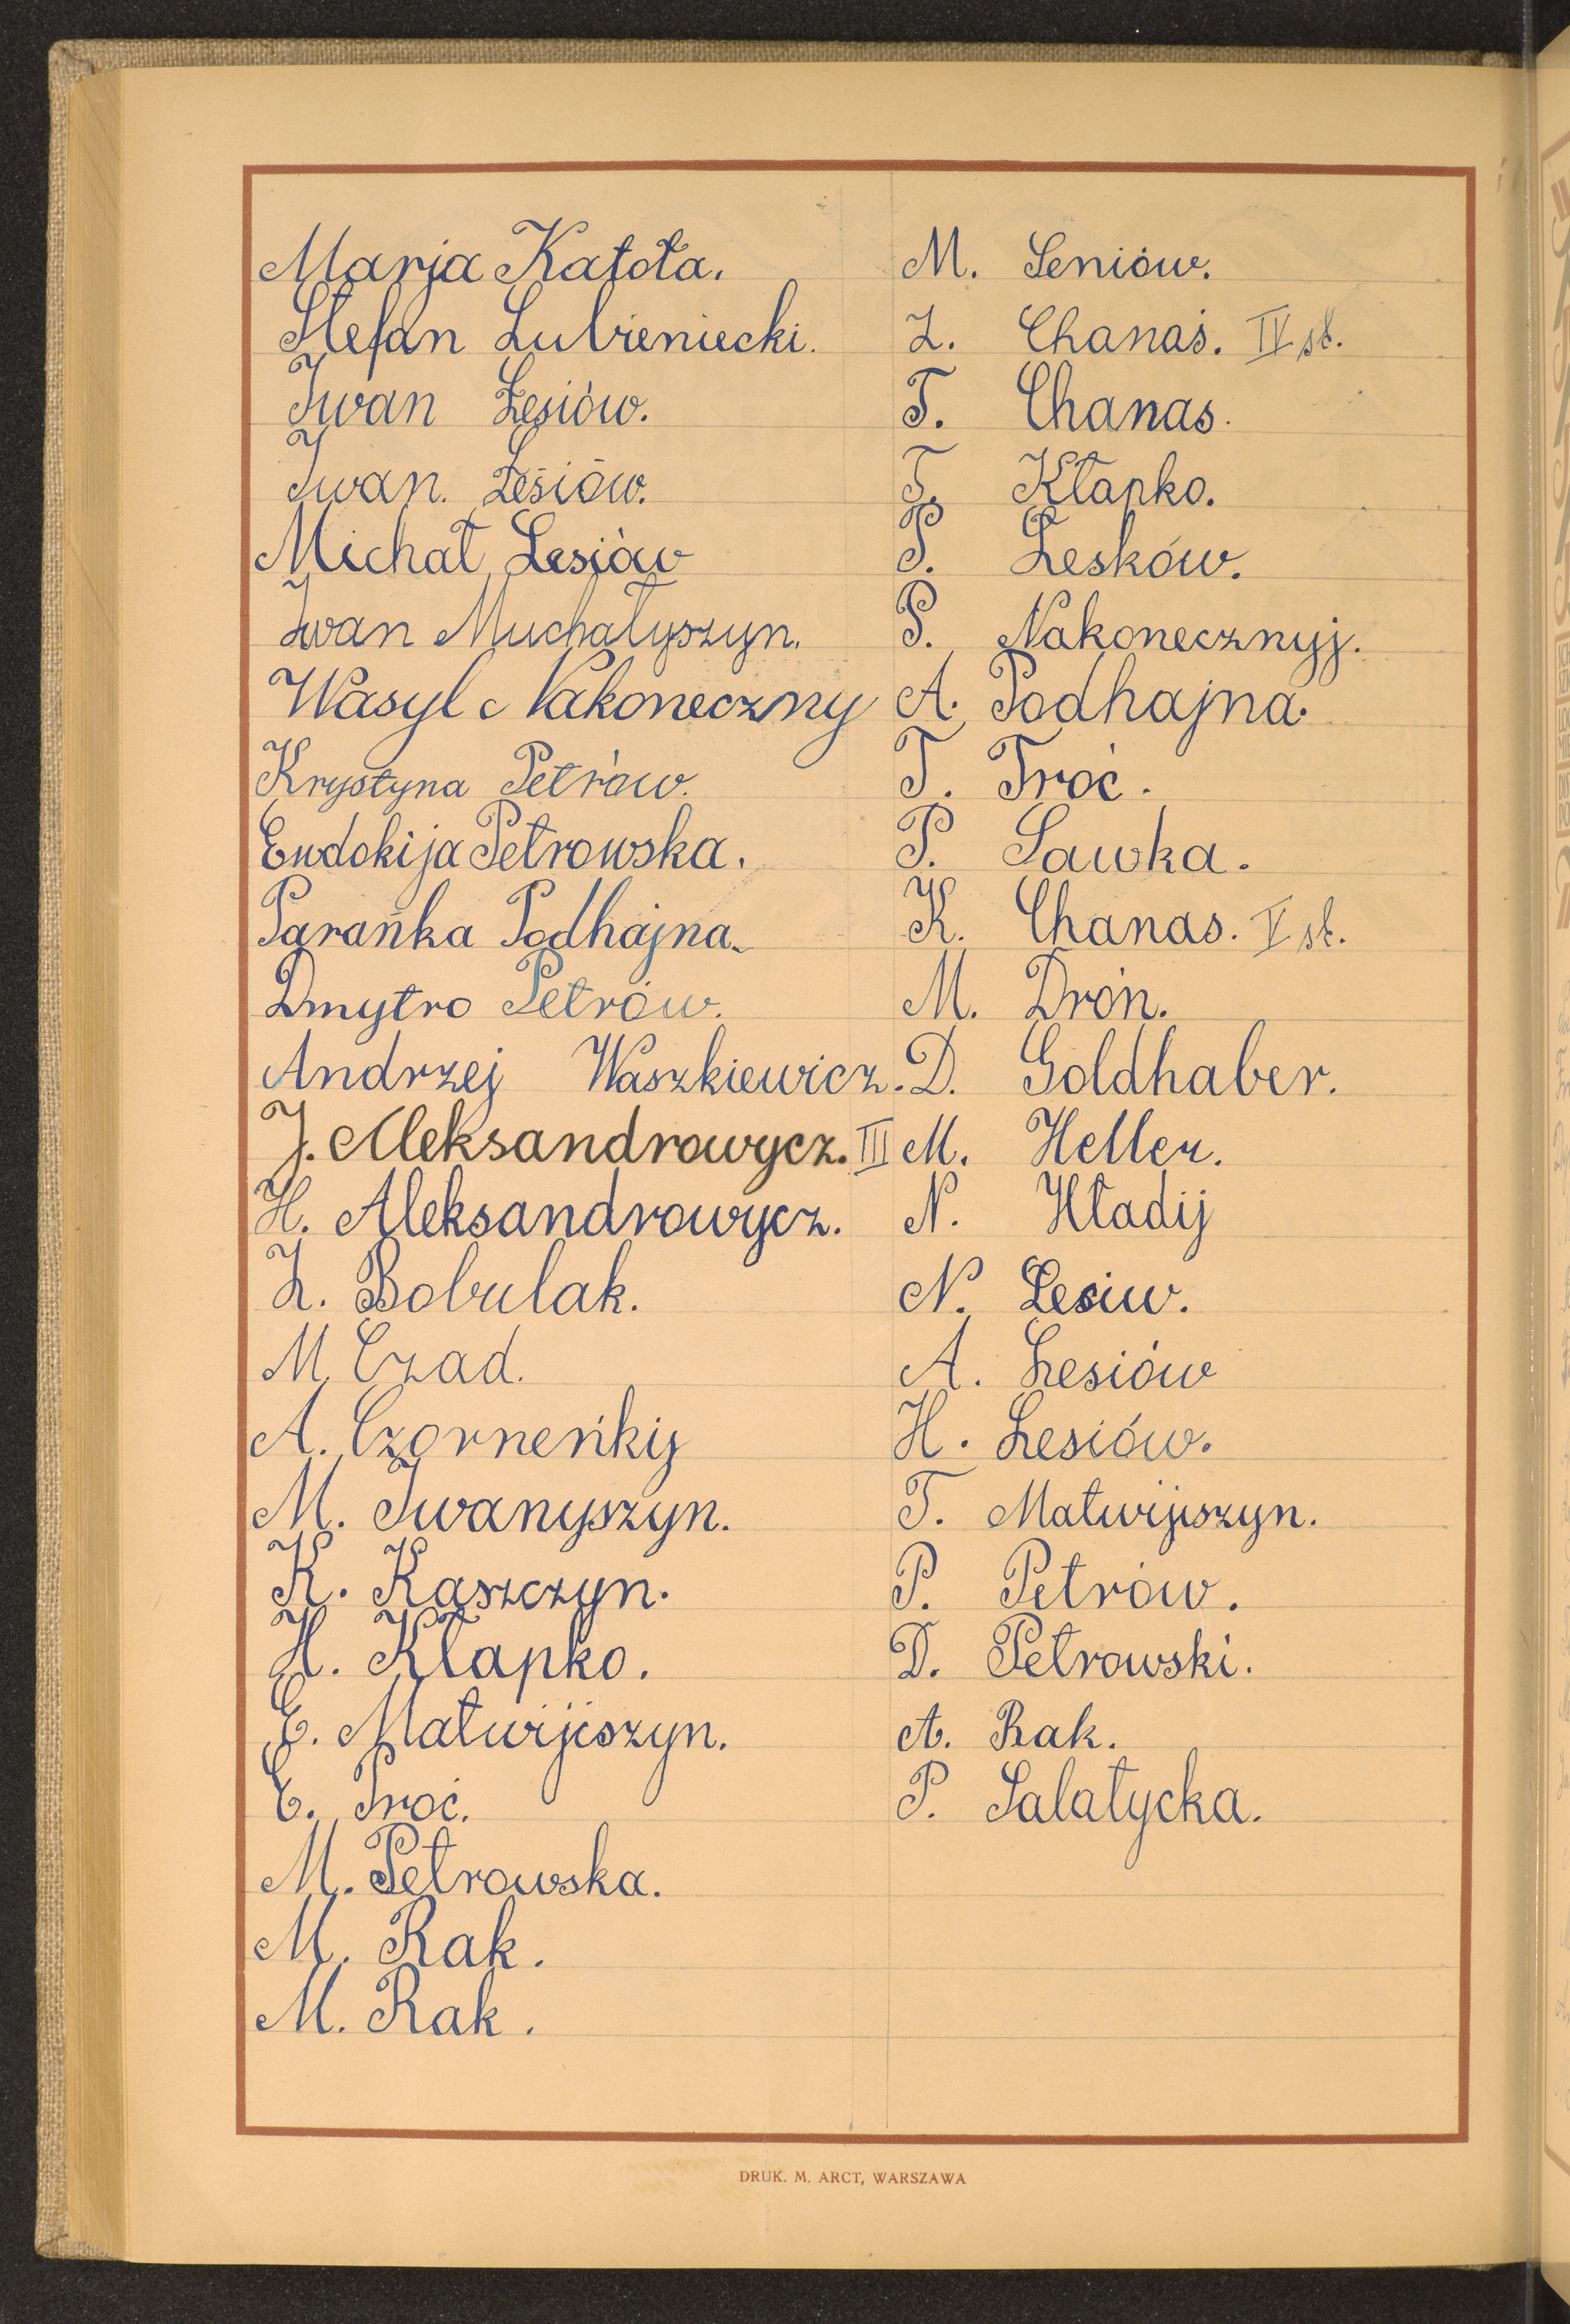 Marja Katoła.
Stefan Lubieniecki.
Iwan Łesiów.
Iwan. Łesiów.
Michał Lesiów
Iwan Muchałyszyn.
Wasyl Nakoneczny
Krystyna Petrów.
Ewdokija Petrowska.
Parańka Podhajna.
Dmytro Petrów.
Andrzej Waszkiewicz.
J. Aleksandrowycz. III
H. Aleksandrowycz.
I. Bobulak.
M. Czad.
A. Czorneńkij
M. Iwanyszyn.
K. Kaszczyn.
H. Kłapko.
E. Matwijiszyn.
E. Proć.
M. Petrowska.
M. Rak.
M. Rak.
M. Seniów.
Z. Chanas. IV st.
T. Chanas.
T. Kłapko.
P. Lesków.
P. Nakonecznyj.
A. Podhajna.
T. Troć.
P. Sawka.
K. Chanas. V st.
M. Droń.
D. Goldhaber.
M. Heller.
N. Hładij
N. Lesiw.
A. Lesiów
H. Lesiów.
T. Matwijiszyn.
P. Petrów.
D. Petrowski.
A. Rak.
P. Sałatycka.
DRUK. M. ARCT, WARSZAWA